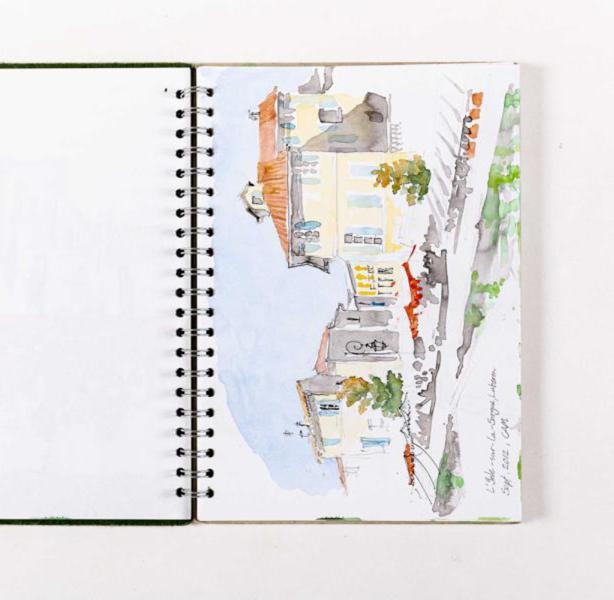 L'Isle-sur-la-Sorgue, Luberon
Sept. 2012, CAM